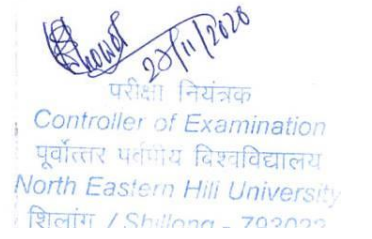 20/11/2020
परीक्षा नियंत्रक
Controller of Examination
पूर्वोत्तर पर्वतीय विश्वविद्यालय
North Eastern Hill University
शिलांग / Shillong - 793022